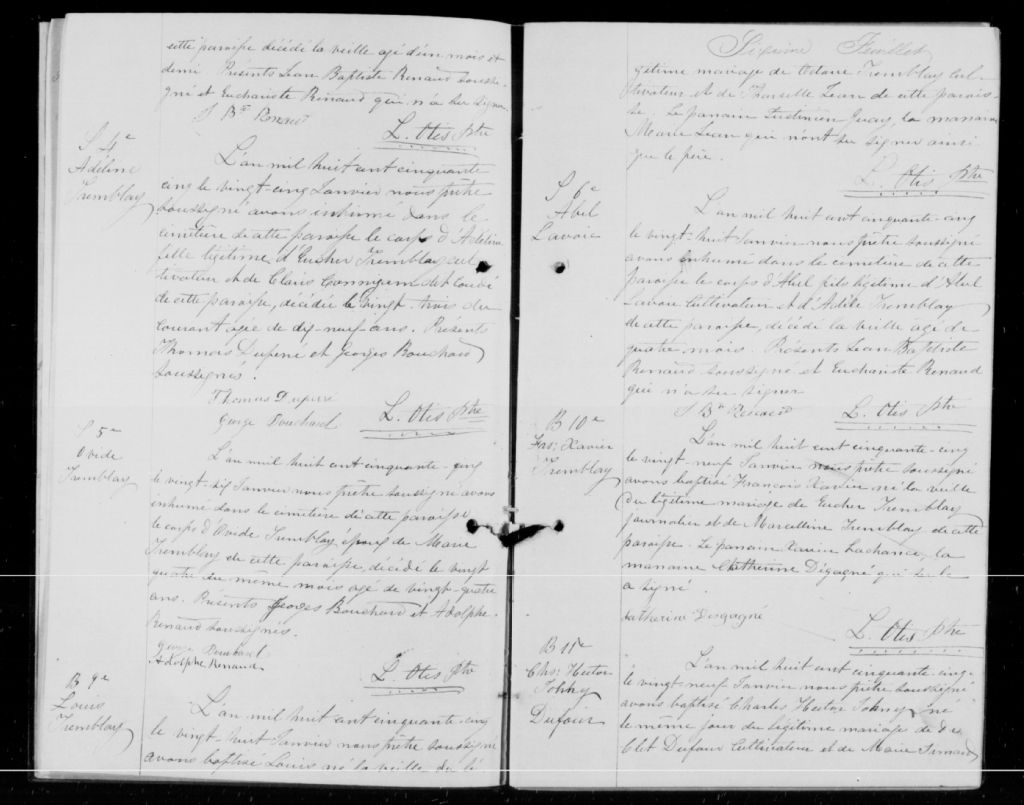 cette paroisse décédé la veille agé d'un mois et
demi Présents Jean Baptiste Renaud soussi-
gné et Euchariste Renaud qui n'a su signer
J Bte Renaud
L. Otis Ptre
S 4e
Adéline
Tremblay
L'an mil huit cent cinquante
cinq le vingt-cinq Janvier nous prêtre
soussigné avons inhumé dans le
cimetière de cette paroisse le corps d'Adéline
fille légitime d'Eucher Tremblay cul
tivateur et de Claire
de cette paroisse, décédée le vingt-trois du
courant agée de dix-neuf ans. Présents
Thomas Dufené et Georges Bouchard
soussignés.
Thomas Dufene
George Bouchard
L. Otis Ptre
S 5e
Ovide
Tremblay
L'an mil huit cent cinquante-cinq
le vingt-six Janvier nous prêtre soussigné avons
inhumé dans le cimetière de cette paroisse
le corps d'Ovide Tremblay époux de Marie
Tremblay de cette paroisse, décédé le vingt
quatre du même mois agé de vingt-quatre
ans. Présents Georges Bouchard et Adolphe
Renaud soussignés.
George Bouchard
Adolphe Renaud
L. Otis Ptre
B 9e
Louis
Tremblay
L'an mil huit cent cinquante cinq
le vingt-huit Janvier nous prêtre soussigné
avons baptisé Louis né la veille du lé
Sixième Feuillet
gitime mariage de Octave Tremblay cul-
tivateur et de Tharselle Jean de cette parois-
se. Le parrain Justinien Guay, la marraine
Marie Jean qui n'ont su signer ainsi
que le père.
L. Otis Ptre
S 6e
Abel
Lavoie
L'an mil huit cent cinquante-cinq
le vingt-huit Janvier nous prêtre soussigné
avons inhumé dans le cimetière de cette
paroisse le corps d'Abel fils légitime d'Abel
Lavoie Cultivateur et d'Adèle Tremblay
de cette paroisse, décédé la veille agé de
quatre mois. Présents Jean Baptiste
Renaud soussigné et Euchariste Renaud
qui n'a su signer
J Bte Renaud
L. Otis Ptre
B 10e
Frs: Xavier
Tremblay
L'an mil huit cent cinquante-cinq
le vingt-neuf Janvier nous prêtre soussigné
avons baptisé François Xavier né la veille
du légitime mariage de Eucher Tremblay
journalier et de Marcelline Tremblay de cette
paroisse. Le parrain Xavier Lachance, la
marraine Catherine Dégagné qui seule
a signé
Catherine Desgagné
L. Otis Ptre
B 11e
Chs: Hector
Johny
Dufour
L'an mil huit cent cinquante-cinq
le vingt neuf Janvier nous prêtre soussigné
avons baptisé Charles Hector Johny né
le même jour du légitime mariage de
Clet Dufour Cultivateur et de Marie Simard